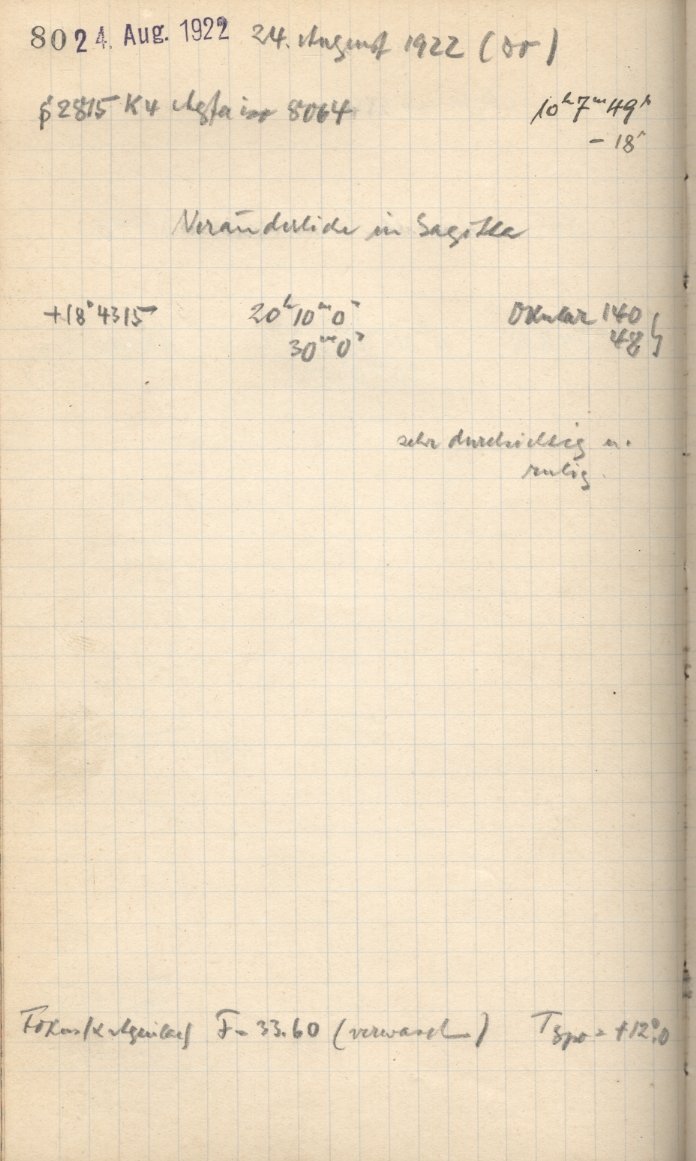 80 24. Aug. 1922 24. August 1922 (Do)
2815 K4 Agfa iso 8064 10ʰ 7ᵐ 49ˢ
- 18ˢ
Veränderliche in Sagitta
+18° 4315 20ʰ 10ᵐ 0ˢ Okular 140
30ᵐ 0ˢ 48
sehr durchsichtig u.
ruhig
Fokus F = 33.60 (verwasch) T = +12°.0